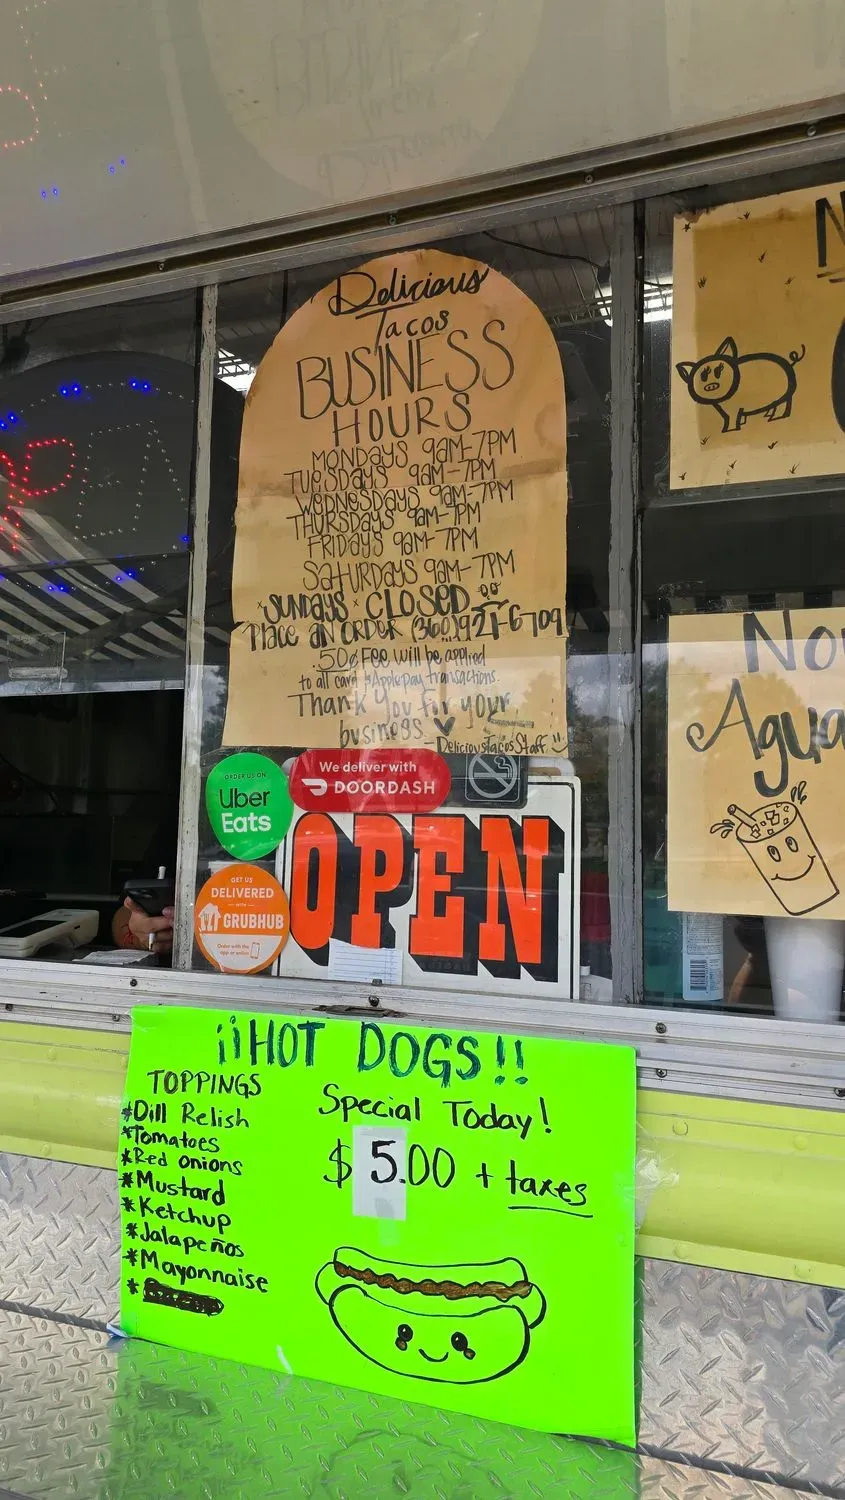 Delicious
Tacos
BUSINESS
HOURS
MONDAYS 9AM-7PM
TUESDAYS 9AM-7PM
WEDNESDAYS 9AM-7PM
THURSDAYS 9AM-7PM
FRIDAYS 9AM-7PM
SATURDAYS 9AM-7PM
SUNDAYS CLOSED
PLACE AN ORDER (360)921-6709
50¢ FEE will be applied
to all card & Applepay transactions.
Thank you for your
business
-DeliciousTacosStaff
ORDER US ON
Uber
Eats
We deliver with
DOORDASH
GET US
DELIVERED
WITH
GRUBHUB
Order with the
app or online
OPEN
N
Now
Agua
¡¡HOT DOGS!!
TOPPINGS
*Dill Relish
*Tomatoes
*Red onions
*Mustard
*Ketchup
*Jalapeños
*Mayonnaise
*
Special Today!
$5.00 + taxes